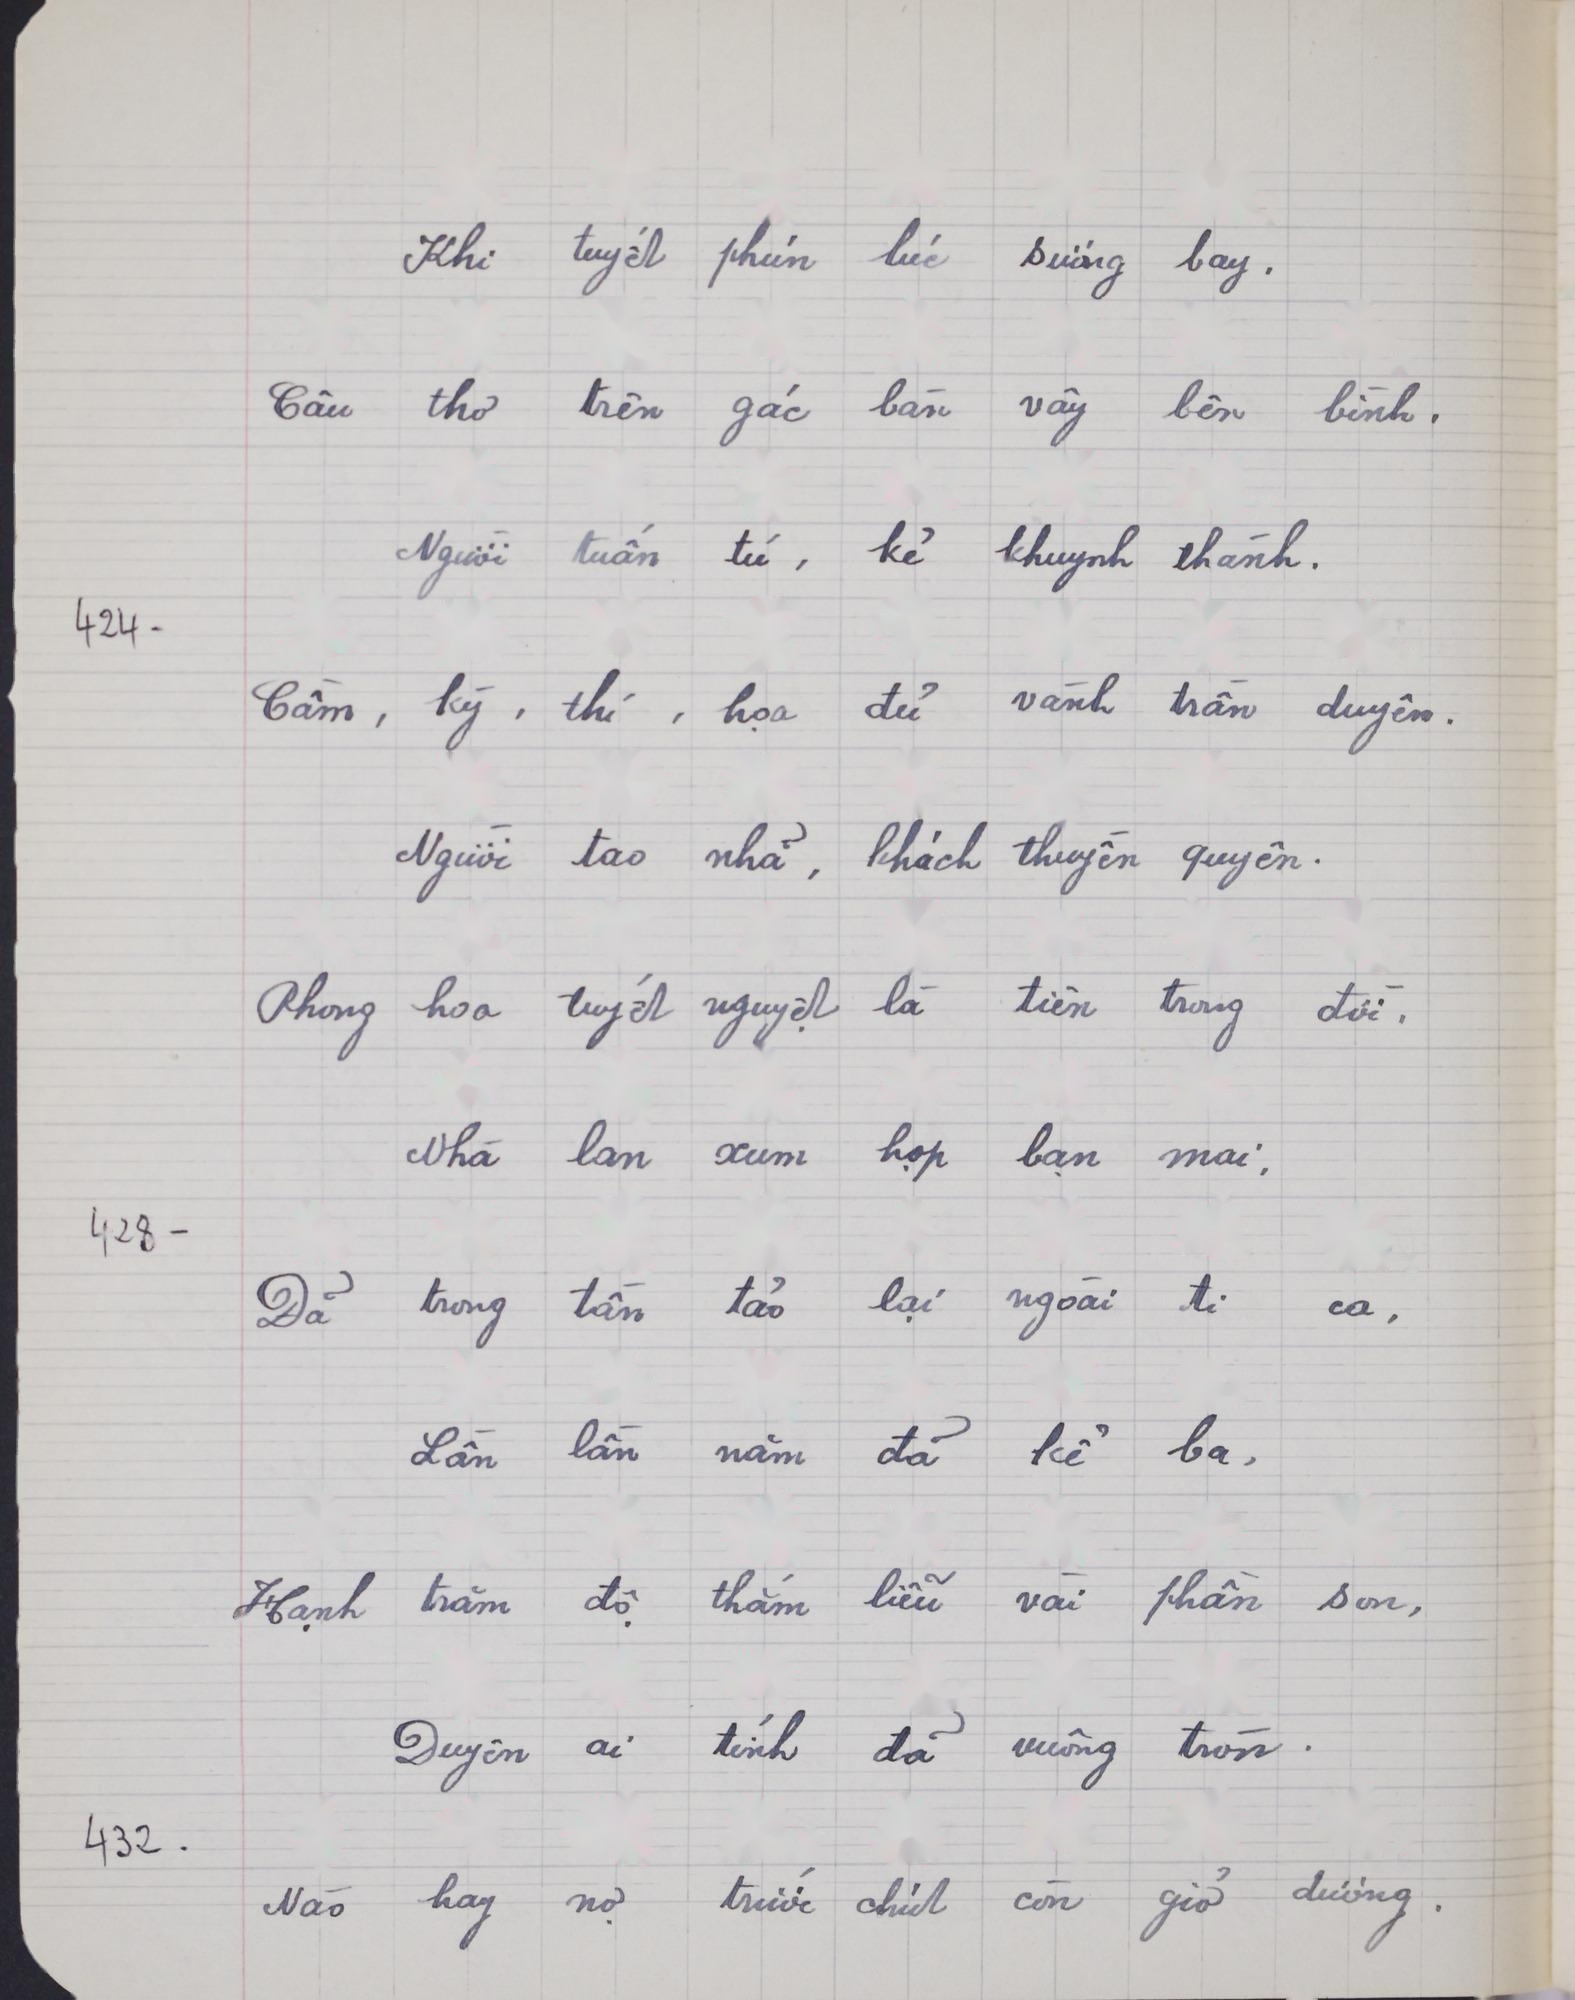 Khi tuyết phún lúc sương bay.
Câu thơ trên gác bàn vây bên bình.
Người tuấn tú, kẻ khuynh thành.
424-
Cầm, kỳ, thi, họa đủ vành trần duyên.
Người tao nhã, khách thuyền quyên.
Phong hoa tuyết nguyệt là tiên trong đời.
Nhà lan xum họp bạn mai,
428-
Dã trong tần tảo lại ngoài ti ca,
Lần lần năm đã kể ba,
Hạnh trăm độ thắm liễu vài phần son,
Duyên ai tính đã vuông tròn.
432.
Nào hay nợ trước chút còn giở dương.